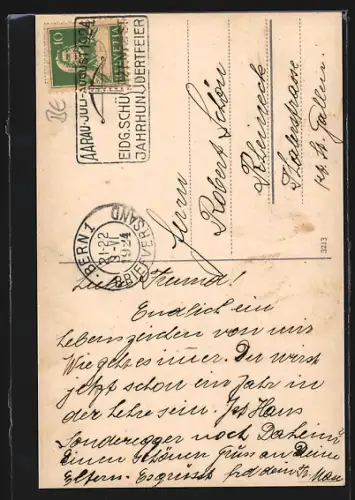 10
HELVETIA
AARAU·JULI-AUGUST 1924
EIDG. SCHÜ
JAHRHUNDERTFEIER
BERN 1
21-22
1924
BRIEFVERSAND
Herrn
Robert Schön
Rheineck
Thalerstrasse
Kt. St. Gallen
3213
Lieber Freund!
Endlich ein
Lebenszeichen von mir
Wie geht es immer. Du wirst
jetzt schon ein Jahr in
der Lehre sein. Ist Hans
Sonderegger noch Daheim
Einen schönen Gruss an Deine
Eltern. Es grüsst